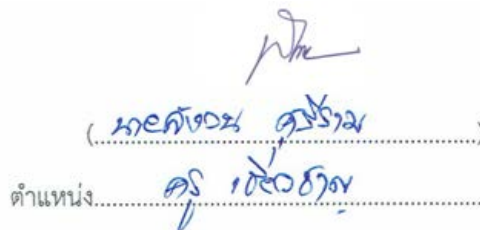 (นายสงวน ศรีราม)
ตำแหน่ง ครู เชี่ยวชาญ